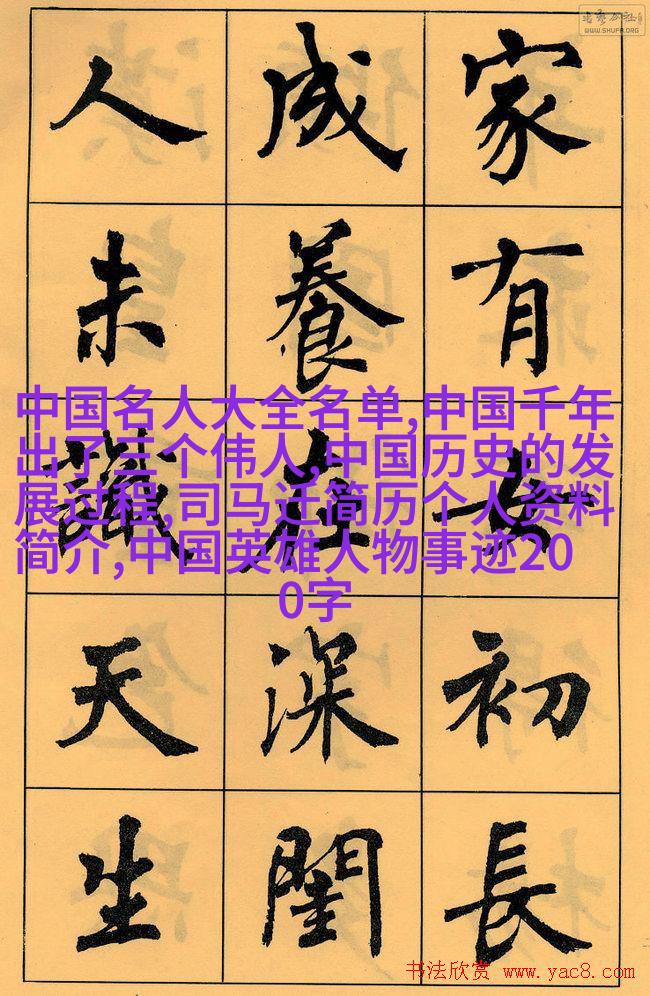 WWW.SHUFA.ORG
家有女初長
成養在深閨
人未識天生
中国名人大全名单,中国千年
出了三个伟人,中国历史的发
展过程,司马迁简历个人资料
简介,中国英雄人物事迹20
0字
书法欣赏 www.yac8.com